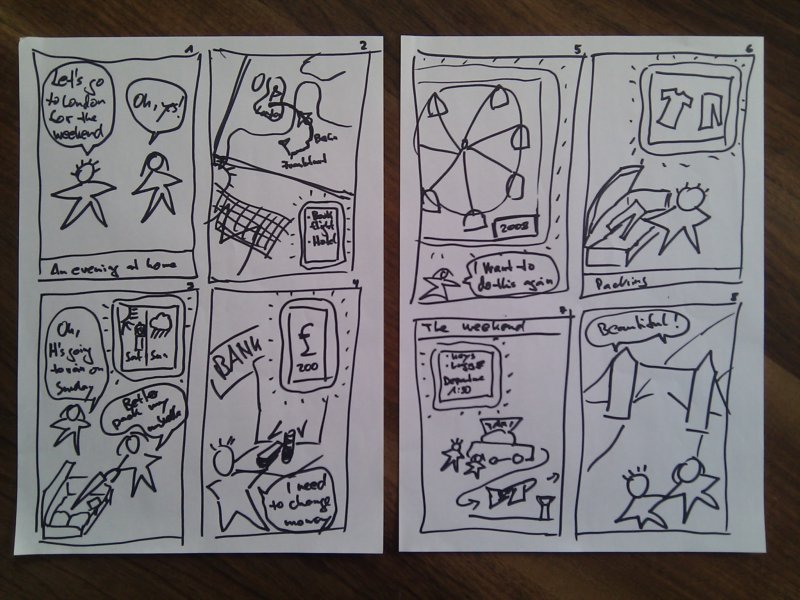 1
Let's go
to London
for the
weekend
Oh, yes!
An evening at home
2
Berlin
Frankfurt
• Book
flight
• Hotel
3
Oh,
it's going
to rain on
Sunday
Sat Sun
Better
pack my
umbrella
4
BANK
£
200
I need
to change
money
5
2008
I want to
do this again
6
Packing
7
The weekend
• Keys
Departure
1:30
TAXI
8
Beautiful!